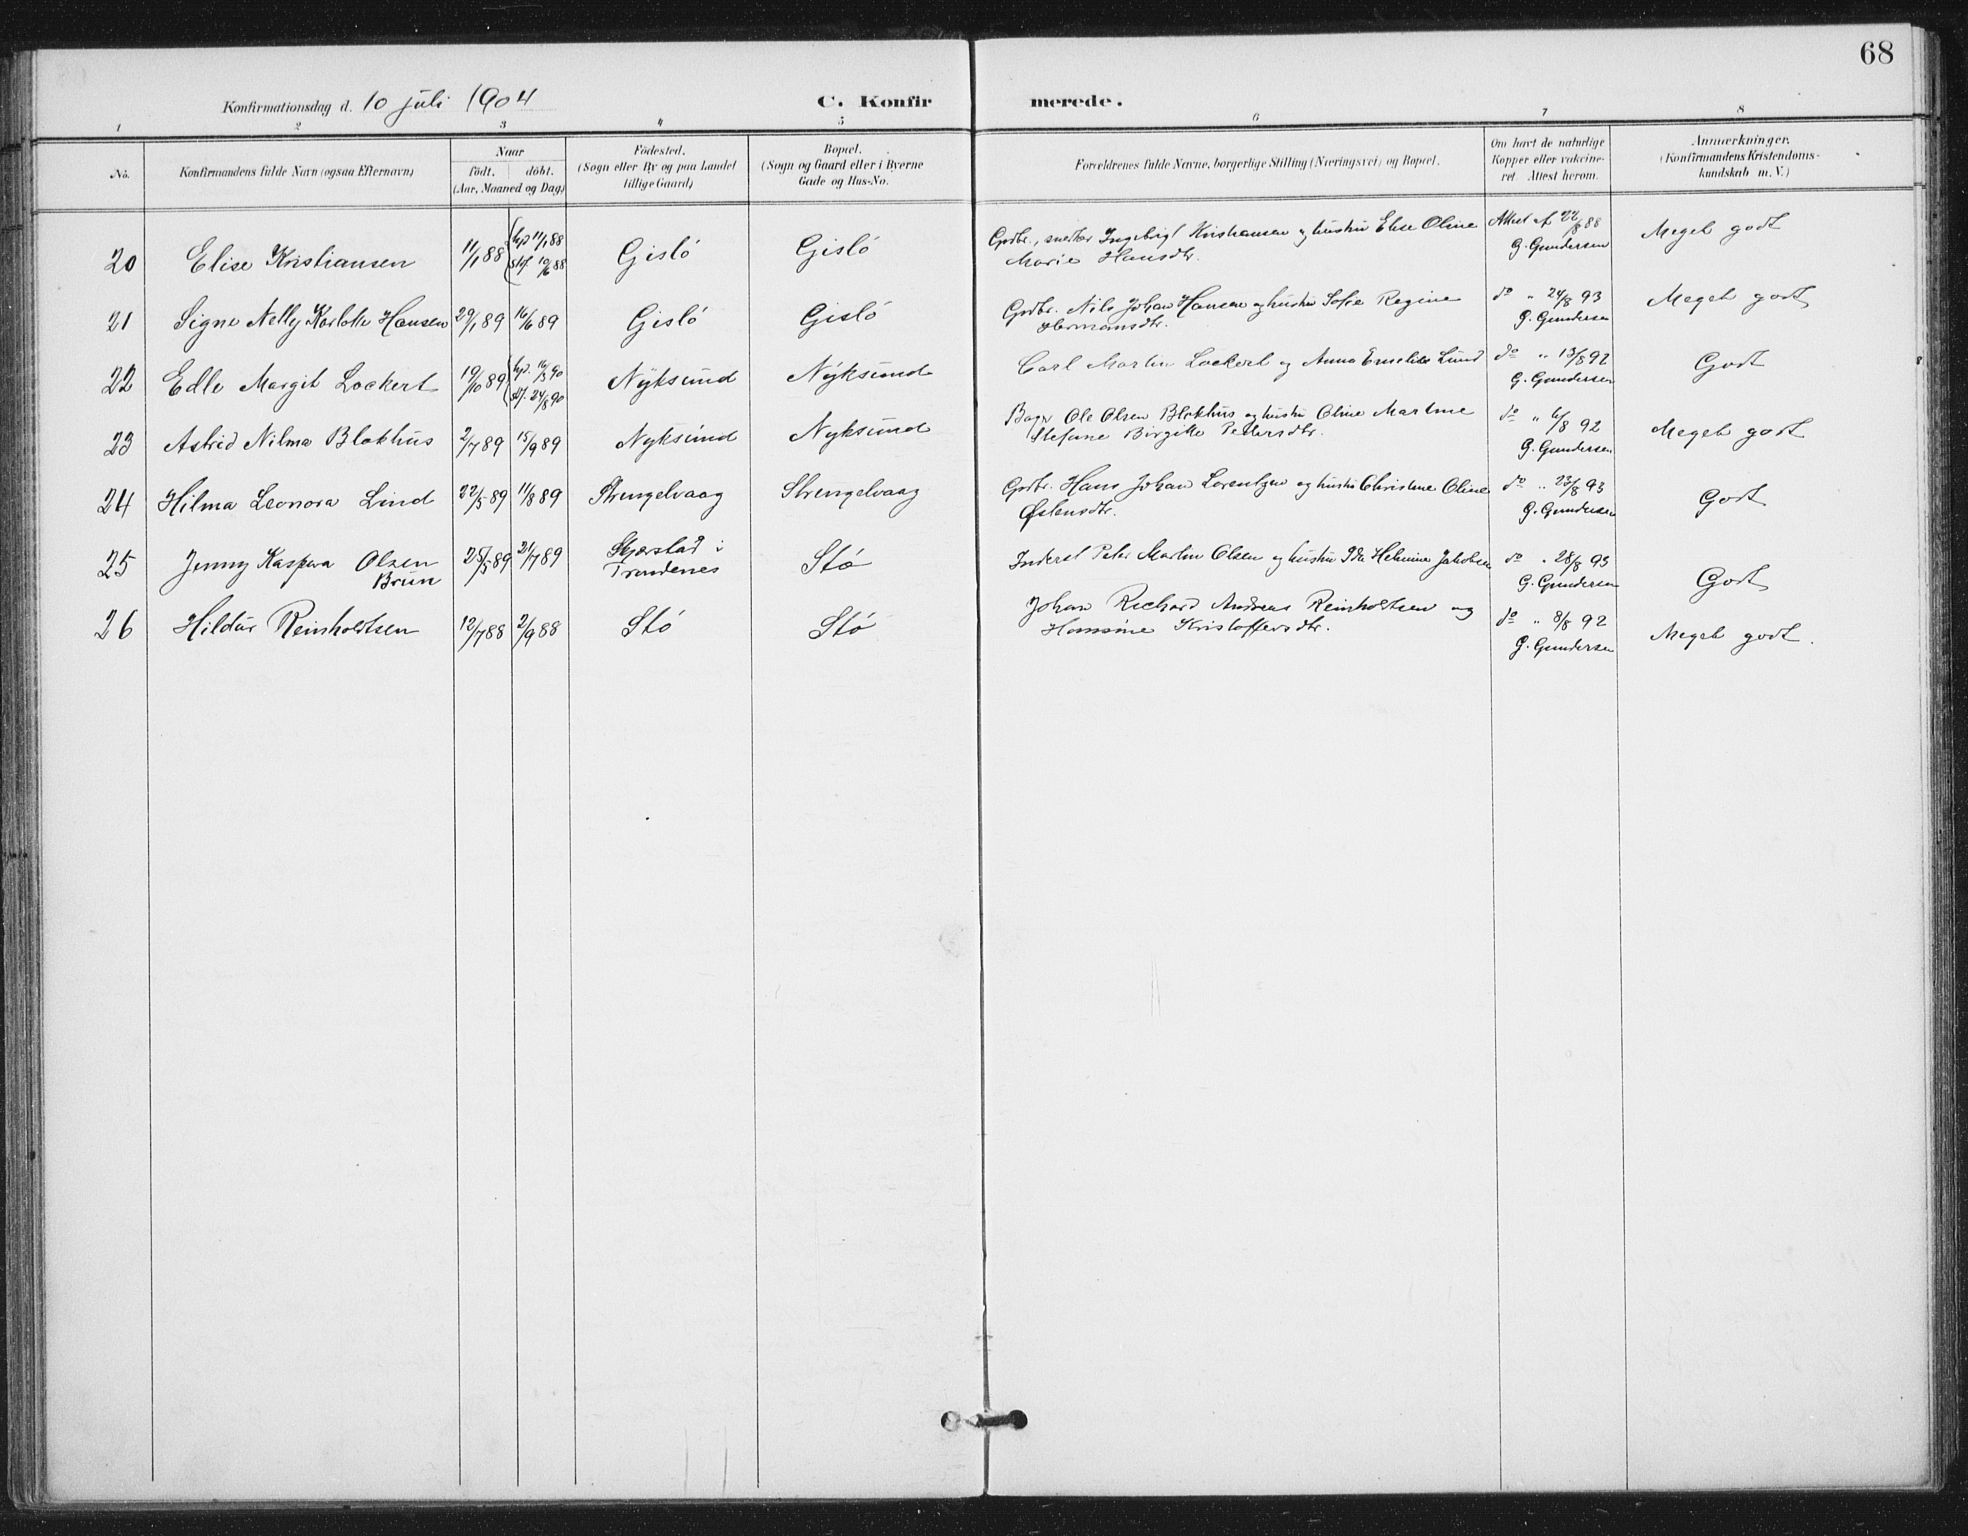 68
Konfirmationsdag d. 10 juli 1904 C. Konfirmerede.
1 2 3 4 5 6 7 8
No.
Konfirmandens fulde Navn (ogsaa Efternavn)
Naar
födt. döbt.
(Aar, Maaned og Dag)
Födested.
(Sogn eller By og paa Landet
tillige Gaard)
Bopæl.
(Sogn og Gaard eller i Byerne
Gade og Hus-No.
Forældrenes fulde Navne, borgerlige Stilling (Næringsvei) og Bopæl.
Om havt de naturlige
Kopper eller vakcine-
ret. Attest herom.
Anmærkninger.
(Konfirmandens Kristendoms-
kundskab m. V.)
20 Elise Kristiansen 11/1 88 hjd 11/1 88 Gislö Gislö Grdbr., snekker Ingebrigt Kristiansen og hustru Elise Oline Attest af 22/8 88 Meget godt
stf. 10/6 88 Marie Hansdtr. G. Gundersen
21 Signe Nelly Karlotte Hansen 29/1 89 16/6 89 Gislö Gislö Grdbr. Nils Johan Hansen og hustru Sofie Regine do " 24/8 93 Meget godt
Hermansdtr. G. Gundersen
22 Edle Margit Lockert 19/10 89 hjd. 16/3 90 Nyksund Nyksund Carl Martin Lockert og Anna Emelie Lund do " 13/8 92 Godt
stf. 24/8 90 G. Gundersen
23 Astrid Nilma Blokhus 2/7 89 15/9 89 Nyksund Nyksund Bager Ole Olsen Blokhus og hustru Oline Martine do " 6/8 92 Meget godt
Stefane Birgitte Pedersdtr. G. Gundersen
24 Hilma Leonora Lind 22/5 89 11/8 89 Strengelvaag Strengelvaag Grdbr. Hans Johan Lorentzen og hustru Christine Oline do " 23/8 93 Godt
Østensdtr. G. Gundersen
25 Jenny Kaspara Olsen 25/5 89 21/7 89 Skjærstad i Stö Inderst Peter Martin Olsen og hustru Ida Helmine Jakobsen do " 28/8 93 Godt
Brun Trondenes G. Gundersen
26 Hildur Reinholdtsen 12/7 88 2/9 88 Stö Stö Johan Richard Andreas Reinholdtsen og do " 8/8 92 Meget godt.
Hansine Kristoffersdtr. G. Gundersen